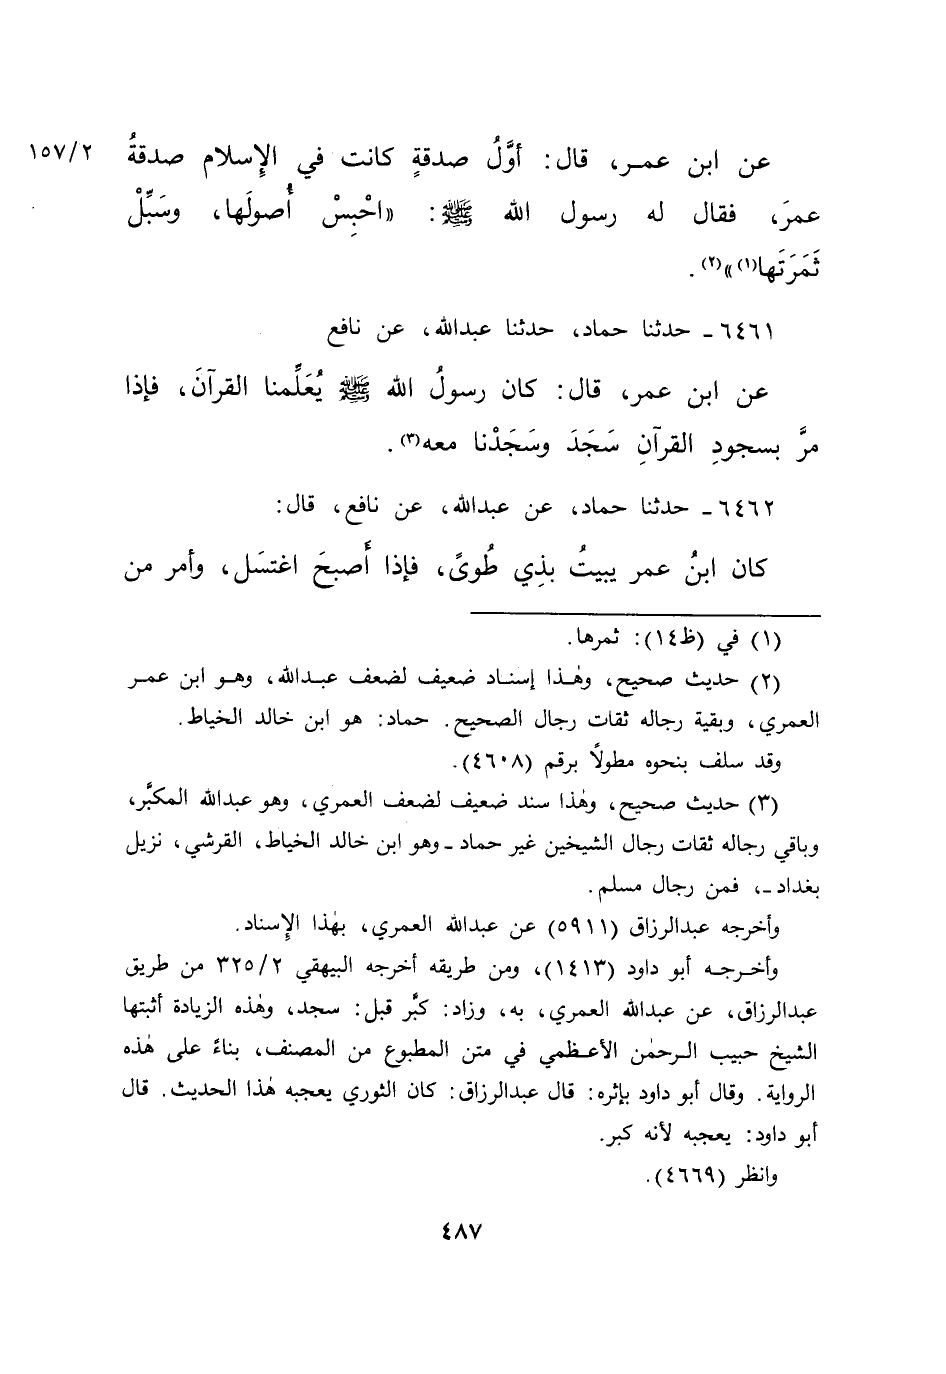 عن ابن عمـر، قال: أوَّلُ صدقةٍ كانت في الإسلام صدقةُ ١٥٧/٢
عمرَ، فقال له رسول الله ﷺ: «احْبِسْ أُصولَها، وسَبِّلْ
ثَمَرَتَها(١)»(٢).
٦٤٦١ـ حدثنا حماد، حدثنا عبدالله، عن نافع
عن ابن عمر، قال: كان رسولُ الله ﷺ يُعَلِّمنا القرآنَ، فإذا
مرَّ بسجودِ القرآنِ سَجَدَ وسَجَدْنا معه(٣).
٦٤٦٢ـ حدثنا حماد، عن عبدالله، عن نافع، قال:
كان ابنُ عمر يبيتُ بذِي طُوىً، فإذا أَصبحَ اغتسَل، وأمر من
(١) في (ظ١٤): ثمرها.
(٢) حديث صحيح، وهٰـذا إسنـاد ضعيف لضعف عبـدالله، وهـو ابن عمـر
العمري، وبقية رجاله ثقات رجال الصحيح. حماد: هو ابن خالد الخياط.
وقد سلف بنحوه مطولاً برقم (٤٦٠٨).
(٣) حديث صحيح، وهٰذا سند ضعيف لضعف العمري، وهو عبدالله المكبَّر،
وباقي رجاله ثقات رجال الشيخين غير حماد ـ وهو ابن خالد الخياط، القرشي، نزيل
بغداد ـ، فمن رجال مسلم.
وأخرجه عبدالرزاق (٥٩١١) عن عبدالله العمري، بهٰذا الإسناد.
وأخـرجـه أبو داود (١٤١٣)، ومن طريقه أخرجه البيهقي ٣٢٥/٢ من طريق
عبدالرزاق، عن عبدالله العمري، به، وزاد: كبَّر قبل: سجد، وهٰذه الزيادة أثبتها
الشيخ حبيب الـرحمٰن الأعـظمي في متن المطبوع من المصنف، بناءً على هٰذه
الرواية. وقال أبو داود بإثره: قال عبدالرزاق: كان الثوري يعجبه هٰذا الحديث. قال
أبو داود: يعجبه لأنه كبر.
وانظر (٤٦٦٩).
٤٨٧